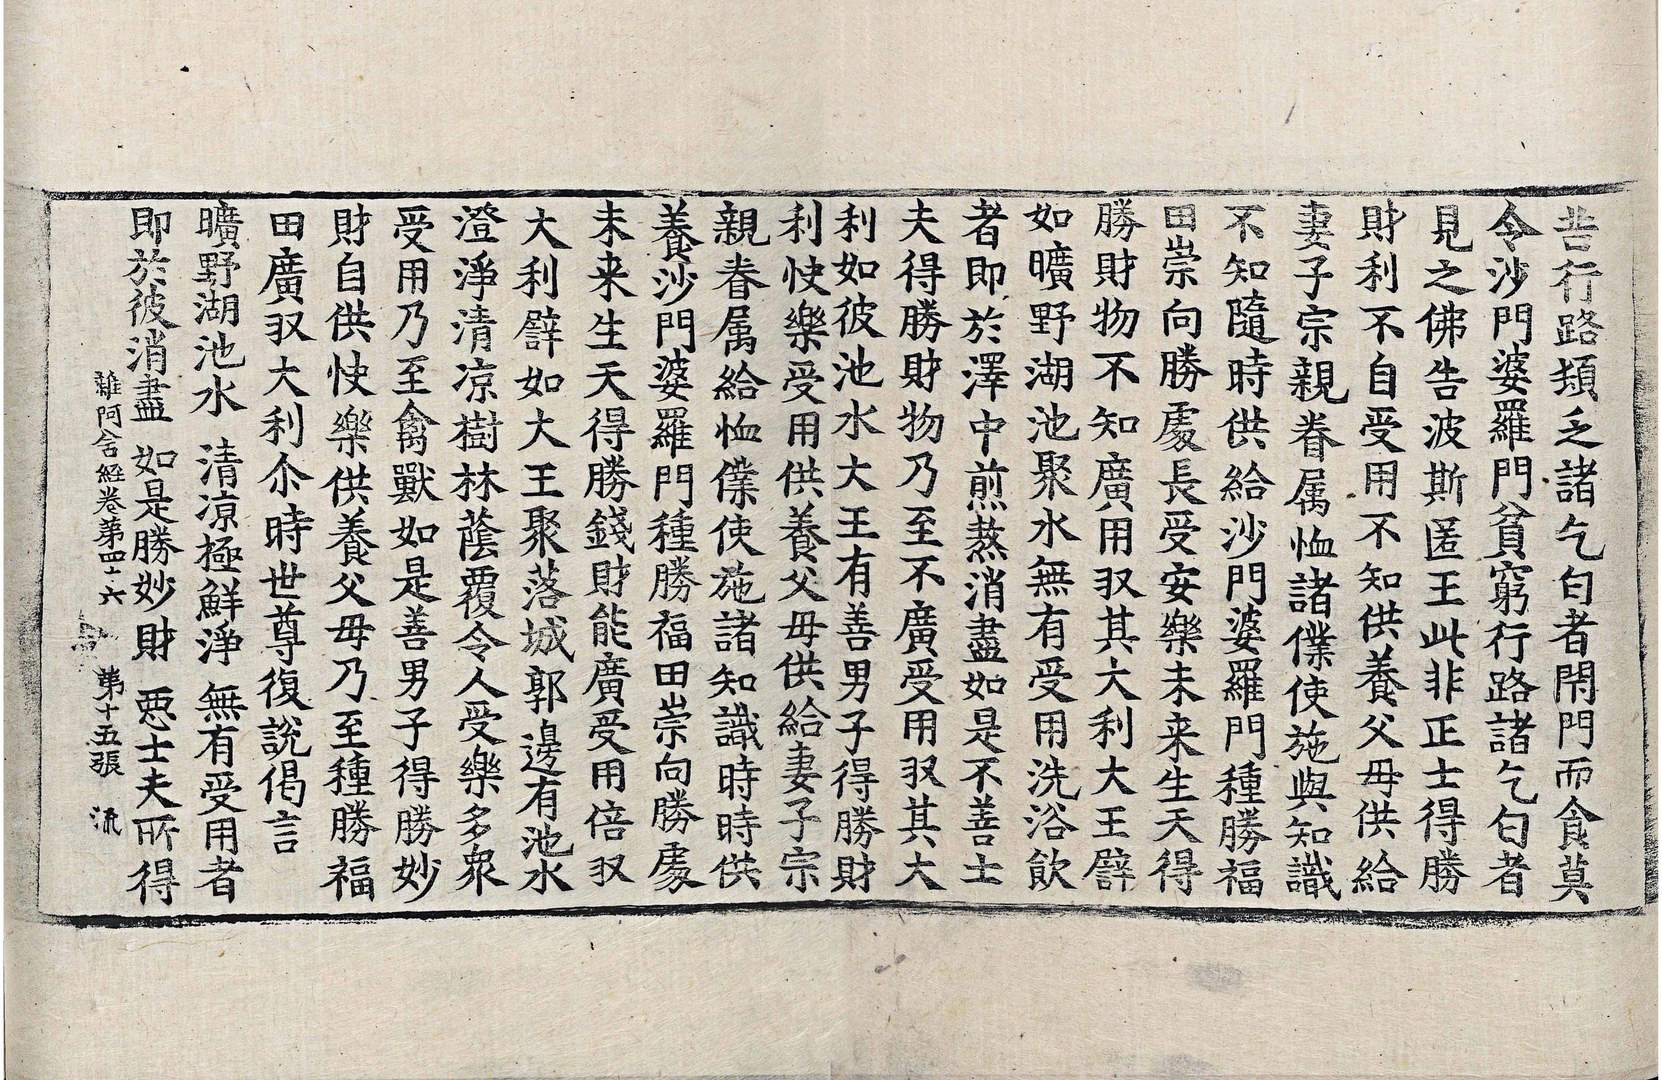 苦行路頬乏諸乞匄者閇門而食莫
令沙門婆羅門貧窮行路諸乞匄者
見之佛告波斯匿王此非正士得勝
財利不自受用不知供養父母供給
妻子宗親眷属恤諸僕使施與知識
不知隨時供給沙門婆羅門種勝福
田崇向勝處長受安樂未来生天得
勝財物不知廣用㕛其大利大王譬
如曠野湖池聚水無有受用洗浴飲
者即於澤中煎熬消盡如是不善士
夫得勝財物乃至不廣受用㕛其大
利如彼池水大王有善男子得勝財
利快樂受用供養父母供給妻子宗
親眷属給恤僕使施諸知識時時供
養沙門婆羅門種勝福田崇向勝處
未来生天得勝錢財能廣受用倍㕛
大利譬如大王聚落城郭邊有池水
澄淨清涼樹林蔭覆令人受樂多衆
受用乃至禽獸如是善男子得勝妙
財自供快樂供養父母乃至種勝福
田廣㕛大利尒時世尊復說偈言
曠野湖池水 清涼極鮮淨 無有受用者
即於彼消盡 如是勝妙財 惡士夫所得
雜阿含經卷第四十六 第十五張 流